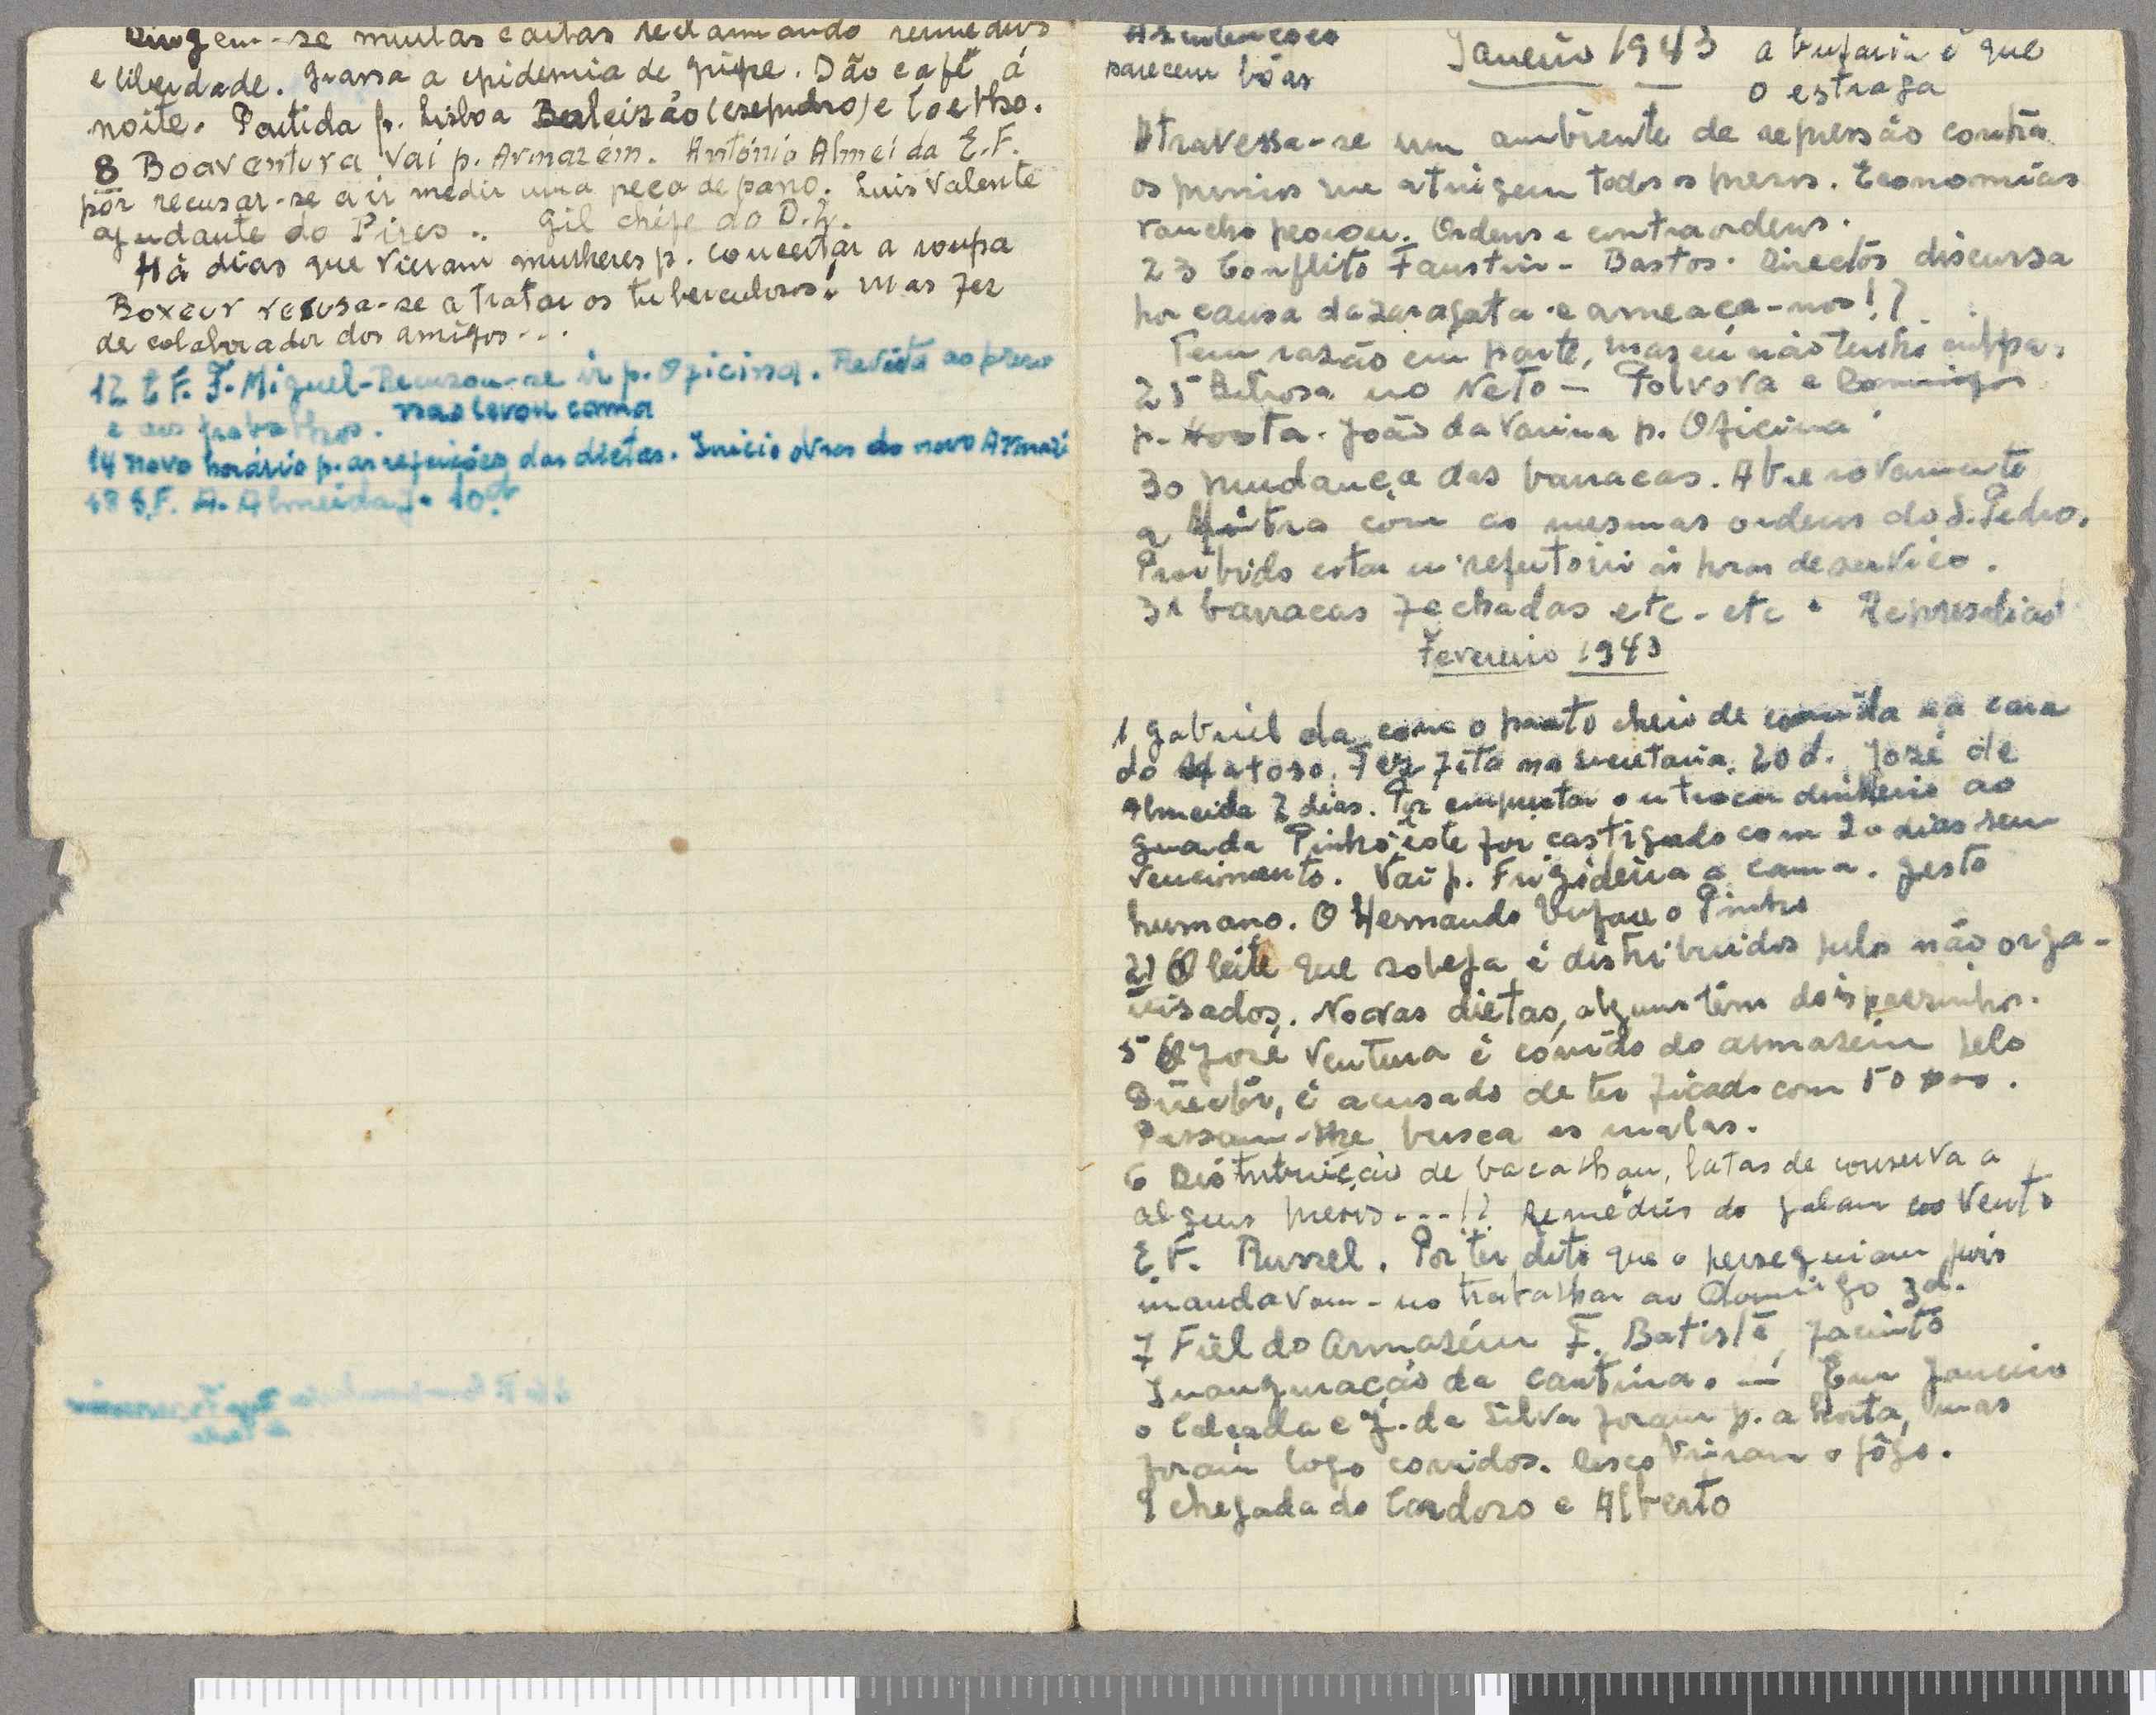 Dirigem-se muitas cartas reclamando remedios
e liberdade. Grassa a epidemia de gripe. Dão café á
noite. Partida p. Lisboa Baleizão (esepudro) e Coelho.
8 Boaventura vai p. Armazém. António Almeida E.F.
por recusar-se a ir medir uma peça de pano. Luis Valente
ajudante do Pires .. Gil chefe do D.
Há dias que vieram mulheres p. concertar a roupa
Boxeur recusa-se a tratar os tuberculosos! mas fez
de colaborador dos amigos...
12 E F. F. Miguel - Recusou-se ir p. Oficina. Revista ao preso
e aos trabalhos. não levou cama
14 Novo horário p. as refeições das dietas. Inicio obras do novo Armazé
18 S.F. A. Almeida J. 10 d.
As intencoes
parecem bôas
Janeiro 1943
a bufaria é que
o estraga
Atravessa-se um ambiente de repressão contra
os presos que atingem todos os presos. Economias
rancho peorou. Ordens e contraordens.
23 Conflito Faustin - Bastos. Directôr discursa
por causa da zaragata e ameaça-nos!?
Tem razão em parte, mas eu não tenho culpa.
25 Bitrosa no Neto - Polvora e Domingos
p. Horta. João da Varina p. Oficina
30 Mudança das barracas. Abre novamente
a Mitra com as mesmas ordens do S. Pedro.
Proibido estar em refeitorio ás horas de serviço.
31 barracas fechadas etc - etc. Represalias
Fevereiro 1943
1 Gabriel da com o prato cheio de comida na cara
do Matoso. Fez fita na secretaria. 20 d. José de
Almeida 2 dias. Por emprestar ou trocar dinheiro ao
guarda Pinho este foi castigado com 20 dias sem
vencimento. Vai p. Frigideira a cama. gesto
humano. O Hernando bufou o Pinho
21 O leite que sobeja é distribuidos pelos não orga-
nisados. Novas dietas, alguns têm dois paesinhos.
5 O José Ventura é corrido do armazém pelo
Directôr, é acusado de ter ficado com 50
Passam-lhe busca ás malas.
6 Distribuição de bacalhau, latas de conserva a
alguns presos...!? Remédios do galam ao Vento
E.F. Russel. Por ter dito que o perseguiam pois
mandavam-no trabalhar ao Domingo 3 d.
7 Fiel do Armazém F. Batista, Jacinto
Inauguração da cantina. - Em Janeiro
o Calçada e J. da Silva foram p. a horta, mas
foram logo corridos. Descobriram o jôgo.
9 chegada do Cardoso e Alberto